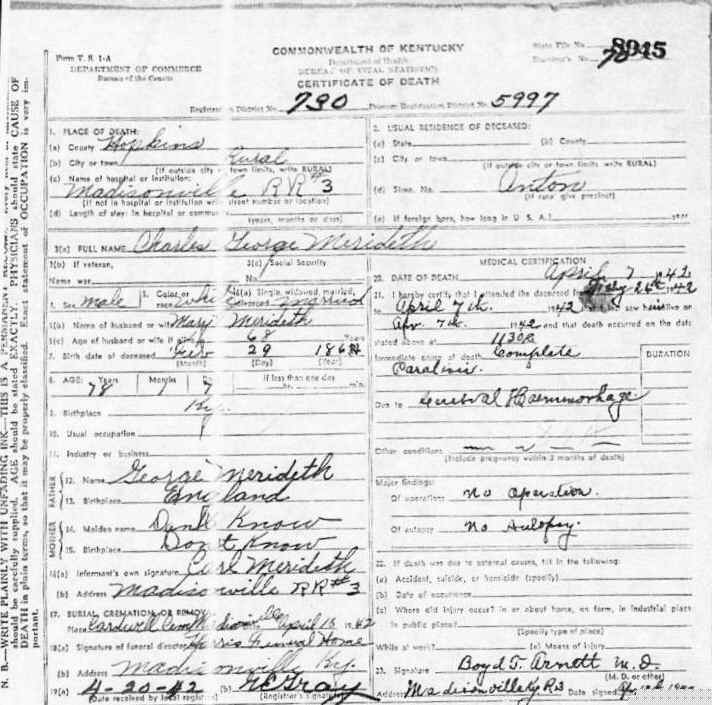 N. B.—WRITE PLAINLY WITH UNFADING INK—THIS IS A
should be carefully supplied. AGE should be stated EXACTLY. PHYSICIANS should state CAUSE OF
DEATH in plain terms, so that it may be properly classified. Exact statement of OCCUPATION is very im-
portant.
Form V. S. 1-A
DEPARTMENT OF COMMERCE
Bureau of the Census
COMMONWEALTH OF KENTUCKY
Department of Health
BUREAU OF VITAL STATISTICS
CERTIFICATE OF DEATH
State File No. 8945
Registrar's No.
Registration District No. 730 Primary Registration District No. 5997
1. PLACE OF DEATH:
(a) County Hopkins
(b) City or town Rural
(If outside city or town limits, write RURAL)
(c) Name of hospital or institution:
Madisonville RR #3
(If not in hospital or institution write street number or location)
(d) Length of stay: In hospital or
(years, months or days)
2. USUAL RESIDENCE OF DECEASED:
(a) State (b) County
(c) City or town
(If outside city or town limits, write RURAL)
(d) Street No. Anton
(If rural give precinct)
(e) If foreign born, how long in U. S. A.? years
3(a) FULL NAME Charles George Merideth
3(b) If veteran,
Name war
3(c) Social Security
No.
4. Sex male 5. Color or race white 6(a) Single, widowed, married, divorced married
6(b) Name of husband or wife Mary Merideth
6(c) Age of husband or wife if alive 68 Years
7. Birth date of deceased Feb 29 1864
(Month) (Day) (Year)
8. AGE: Years Months
78 1 7
If less than one day
hr. min.
9. Birthplace Ky.
10. Usual occupation
11. Industry or business
FATHER
12. Name George Merideth
13. Birthplace England
MOTHER
14. Maiden name Dont Know
15. Birthplace Dont Know
16(a) Informant's own signature Carl Merideth
(b) Address Madisonville RR #3
17. BURIAL, CREMATION OR REMOVAL
Place Cardwell Cem April 1942
18(a) Signature of funeral director Harris Funeral Home
(b) Address Madisonville Ky.
19(a) 4-20-42 (b) Gray
(Date received by local registrar) (Registrar's signature)
MEDICAL CERTIFICATION
20. DATE OF DEATH April 7 1942
21. I hereby certify, that I attended the deceased 1942
to April 7th. 1942 and that I last saw alive on
Apr. 7th. 1942 and that death occurred on the date
stated above at 1130
Immediate cause of death Complete
DURATION
Due to Haemmorhage
Other conditions
(Include pregnancy within 3 months of death)
Major findings:
Of operations No Operation.
Of autopsy No Autopsy.
22. If death was due to external causes, fill in the following:
(a) Accident, suicide, or homicide (specify)
(b) Date of occurrence
(c) Where did injury occur? in or about home, on farm, in industrial place
in public place?
(Specify type of place)
While at work? (e) Means of injury
23. Signature Boyd T. Arnett M.D.
(M. D. or other)
Address Madisonville Ky R3 Date signed